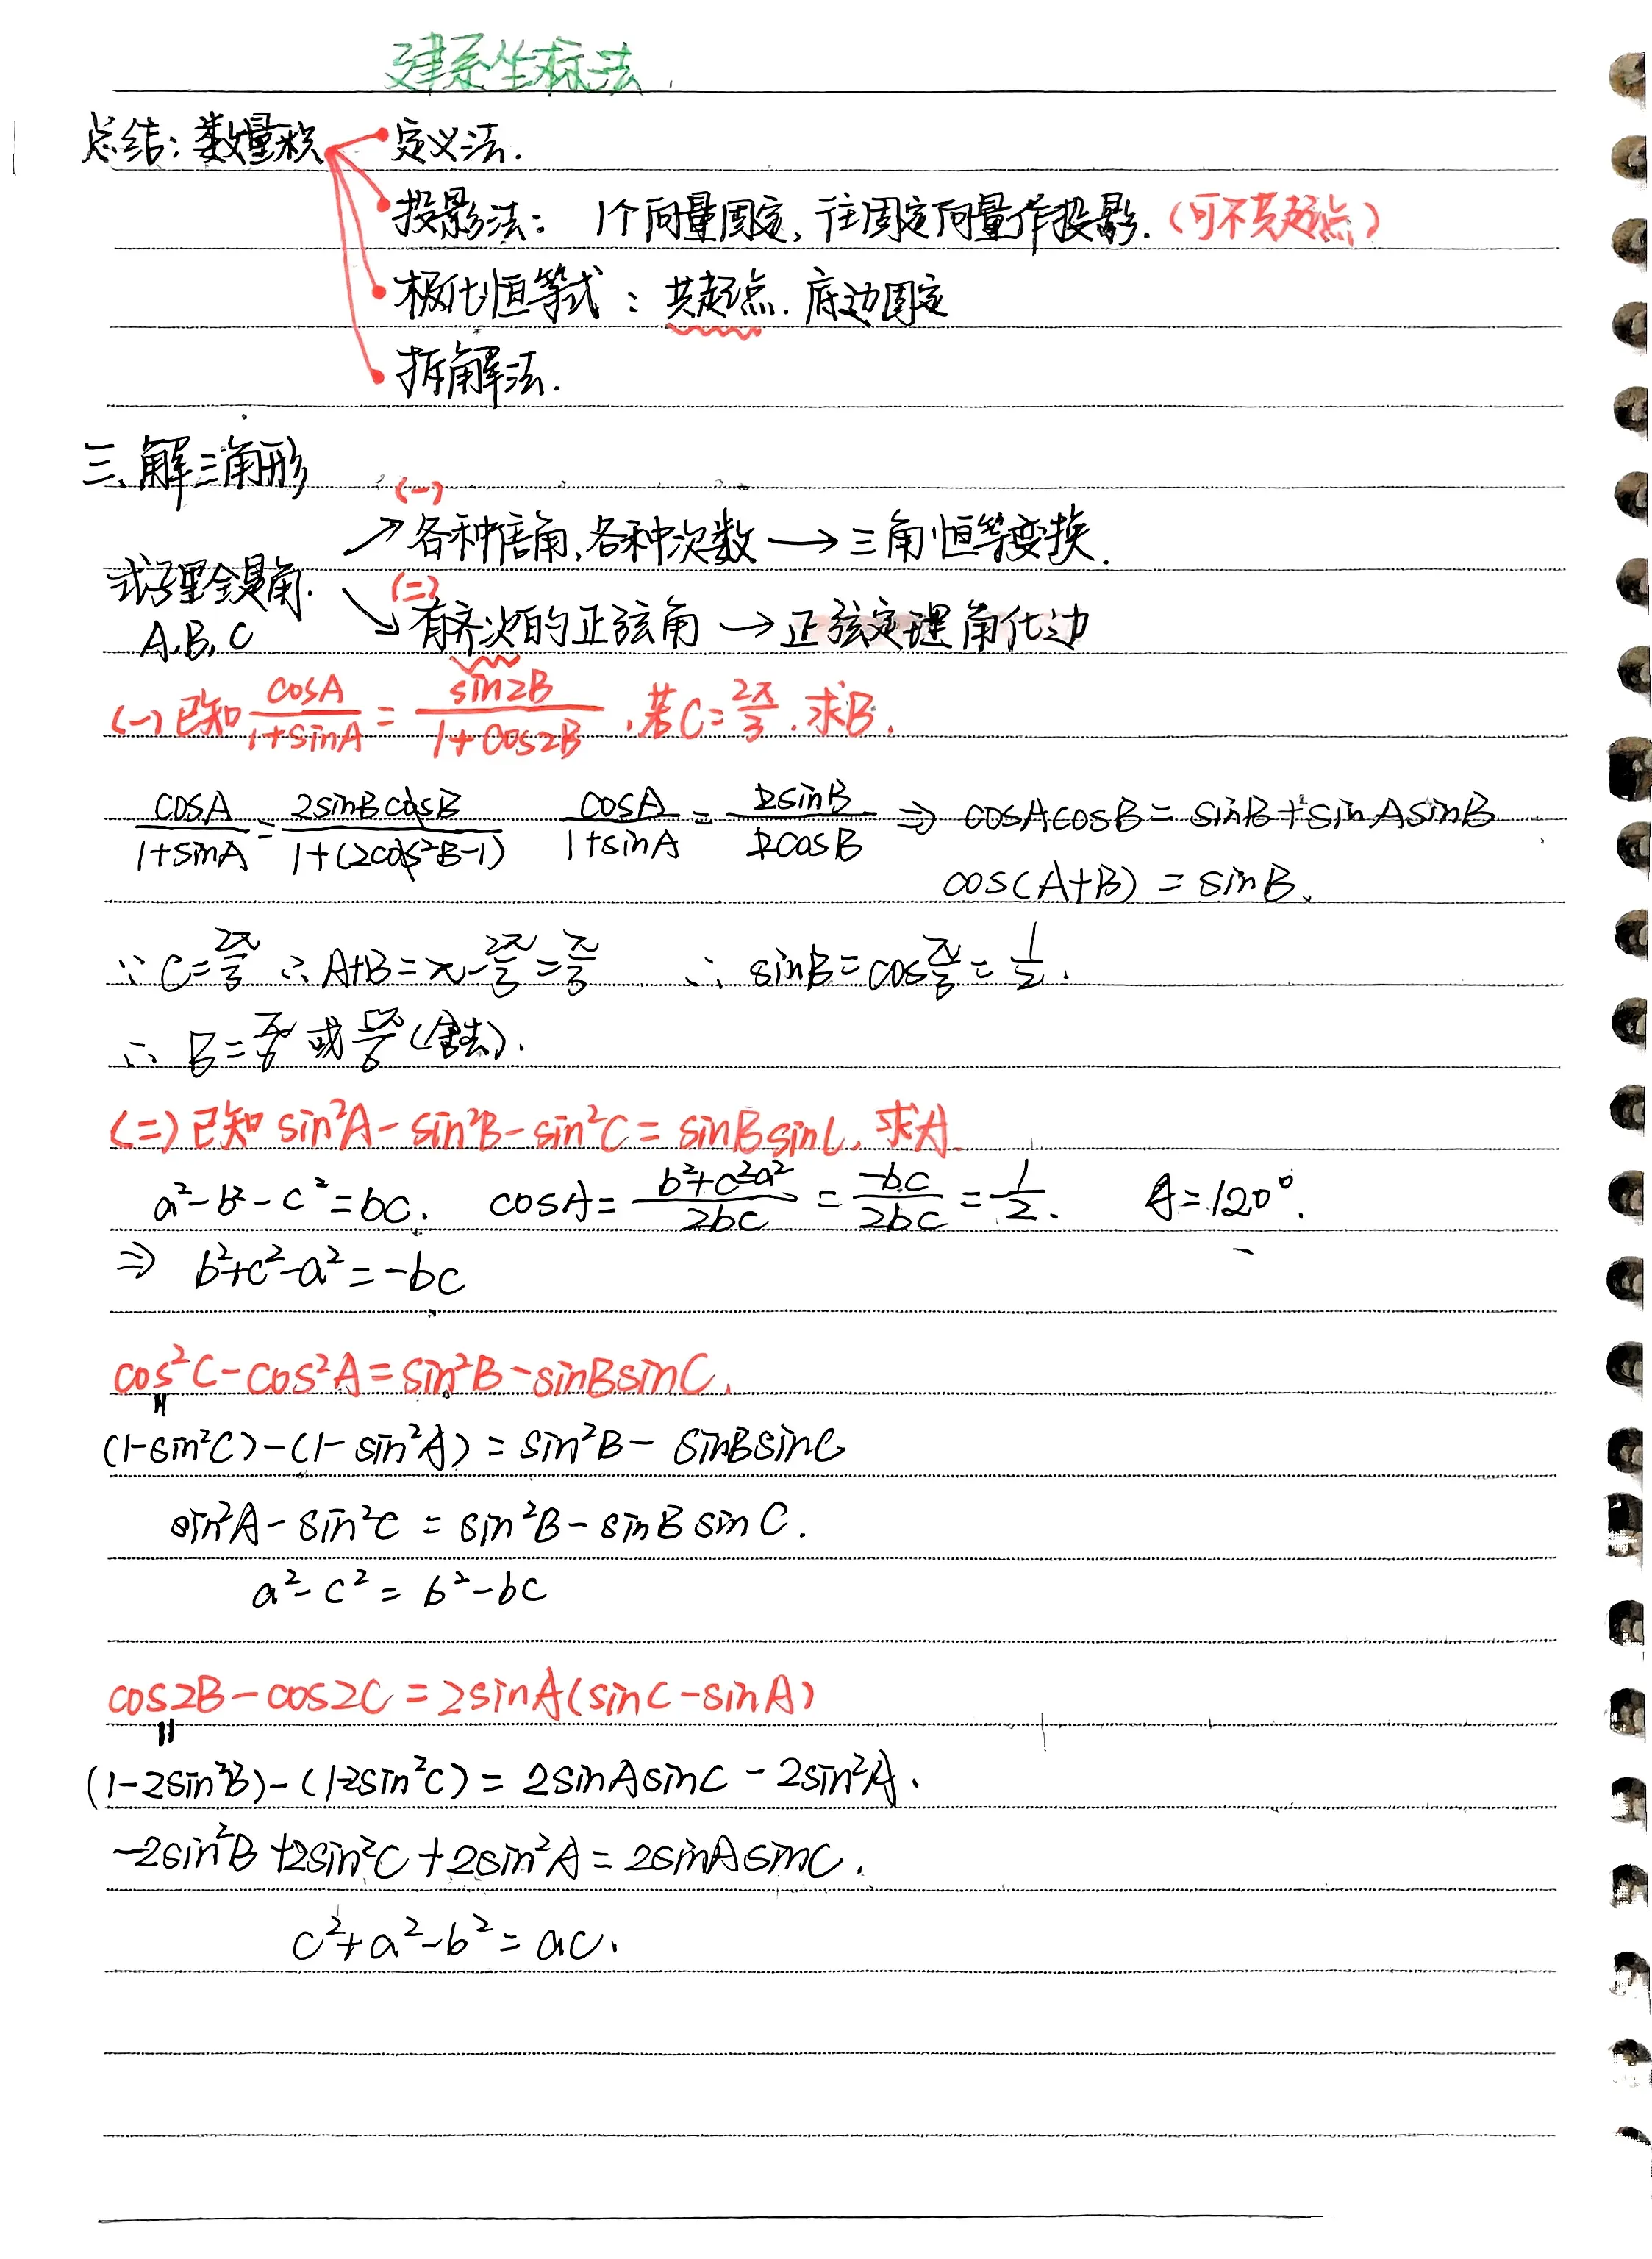 建系坐标法.
总结：数量积 定义法.
投影法： 1个向量固定, 往固定向量作投影.(可不共起点)
极化恒等式：共起点. 底边固定
拆解法.
三、解三角形
(一)
各种倍角,各种次数→三角恒等变换.
式子里全是角.
A,B,C
(二)
有齐次的正弦角→正弦定理 角化边
(一)已知 cosA/(1+sinA) = sin2B/(1+cos2B) ,若C=2π/3.求B.
cosA/(1+sinA) = 2sinBcosB/(1+(2cos²B-1)) cosA/(1+sinA) = 2sinB/2cosB ⇒ cosAcosB=sinB+sinAsinB
cos(A+B)=sinB.
∵C=2π/3 ∴A+B=π-2π/3=π/3 ∴ sinB=cosπ/3=1/2.
∴ B=π/6 或 5π/6 (舍去).
(二)已知 sin²A-sin²B-sin²C=sinBsinC,求A.
a²-b²-c²=bc. cosA=(b²+c²-a²)/2bc = -bc/2bc = -1/2. A=120°.
⇒ b²+c²-a²=-bc
cos²C-cos²A=sin²B-sinBsinC.
(1-sin²C)-(1-sin²A)=sin²B-sinBsinC
sin²A-sin²C=sin²B-sinBsinC.
a²-c²=b²-bc
cos2B-cos2C=2sinA(sinC-sinA)
(1-2sin²B)-(1-2sin²C)=2sinAsinC-2sin²A.
-2sin²B+2sin²C+2sin²A=2sinAsinC.
c²+a²-b²=ac.